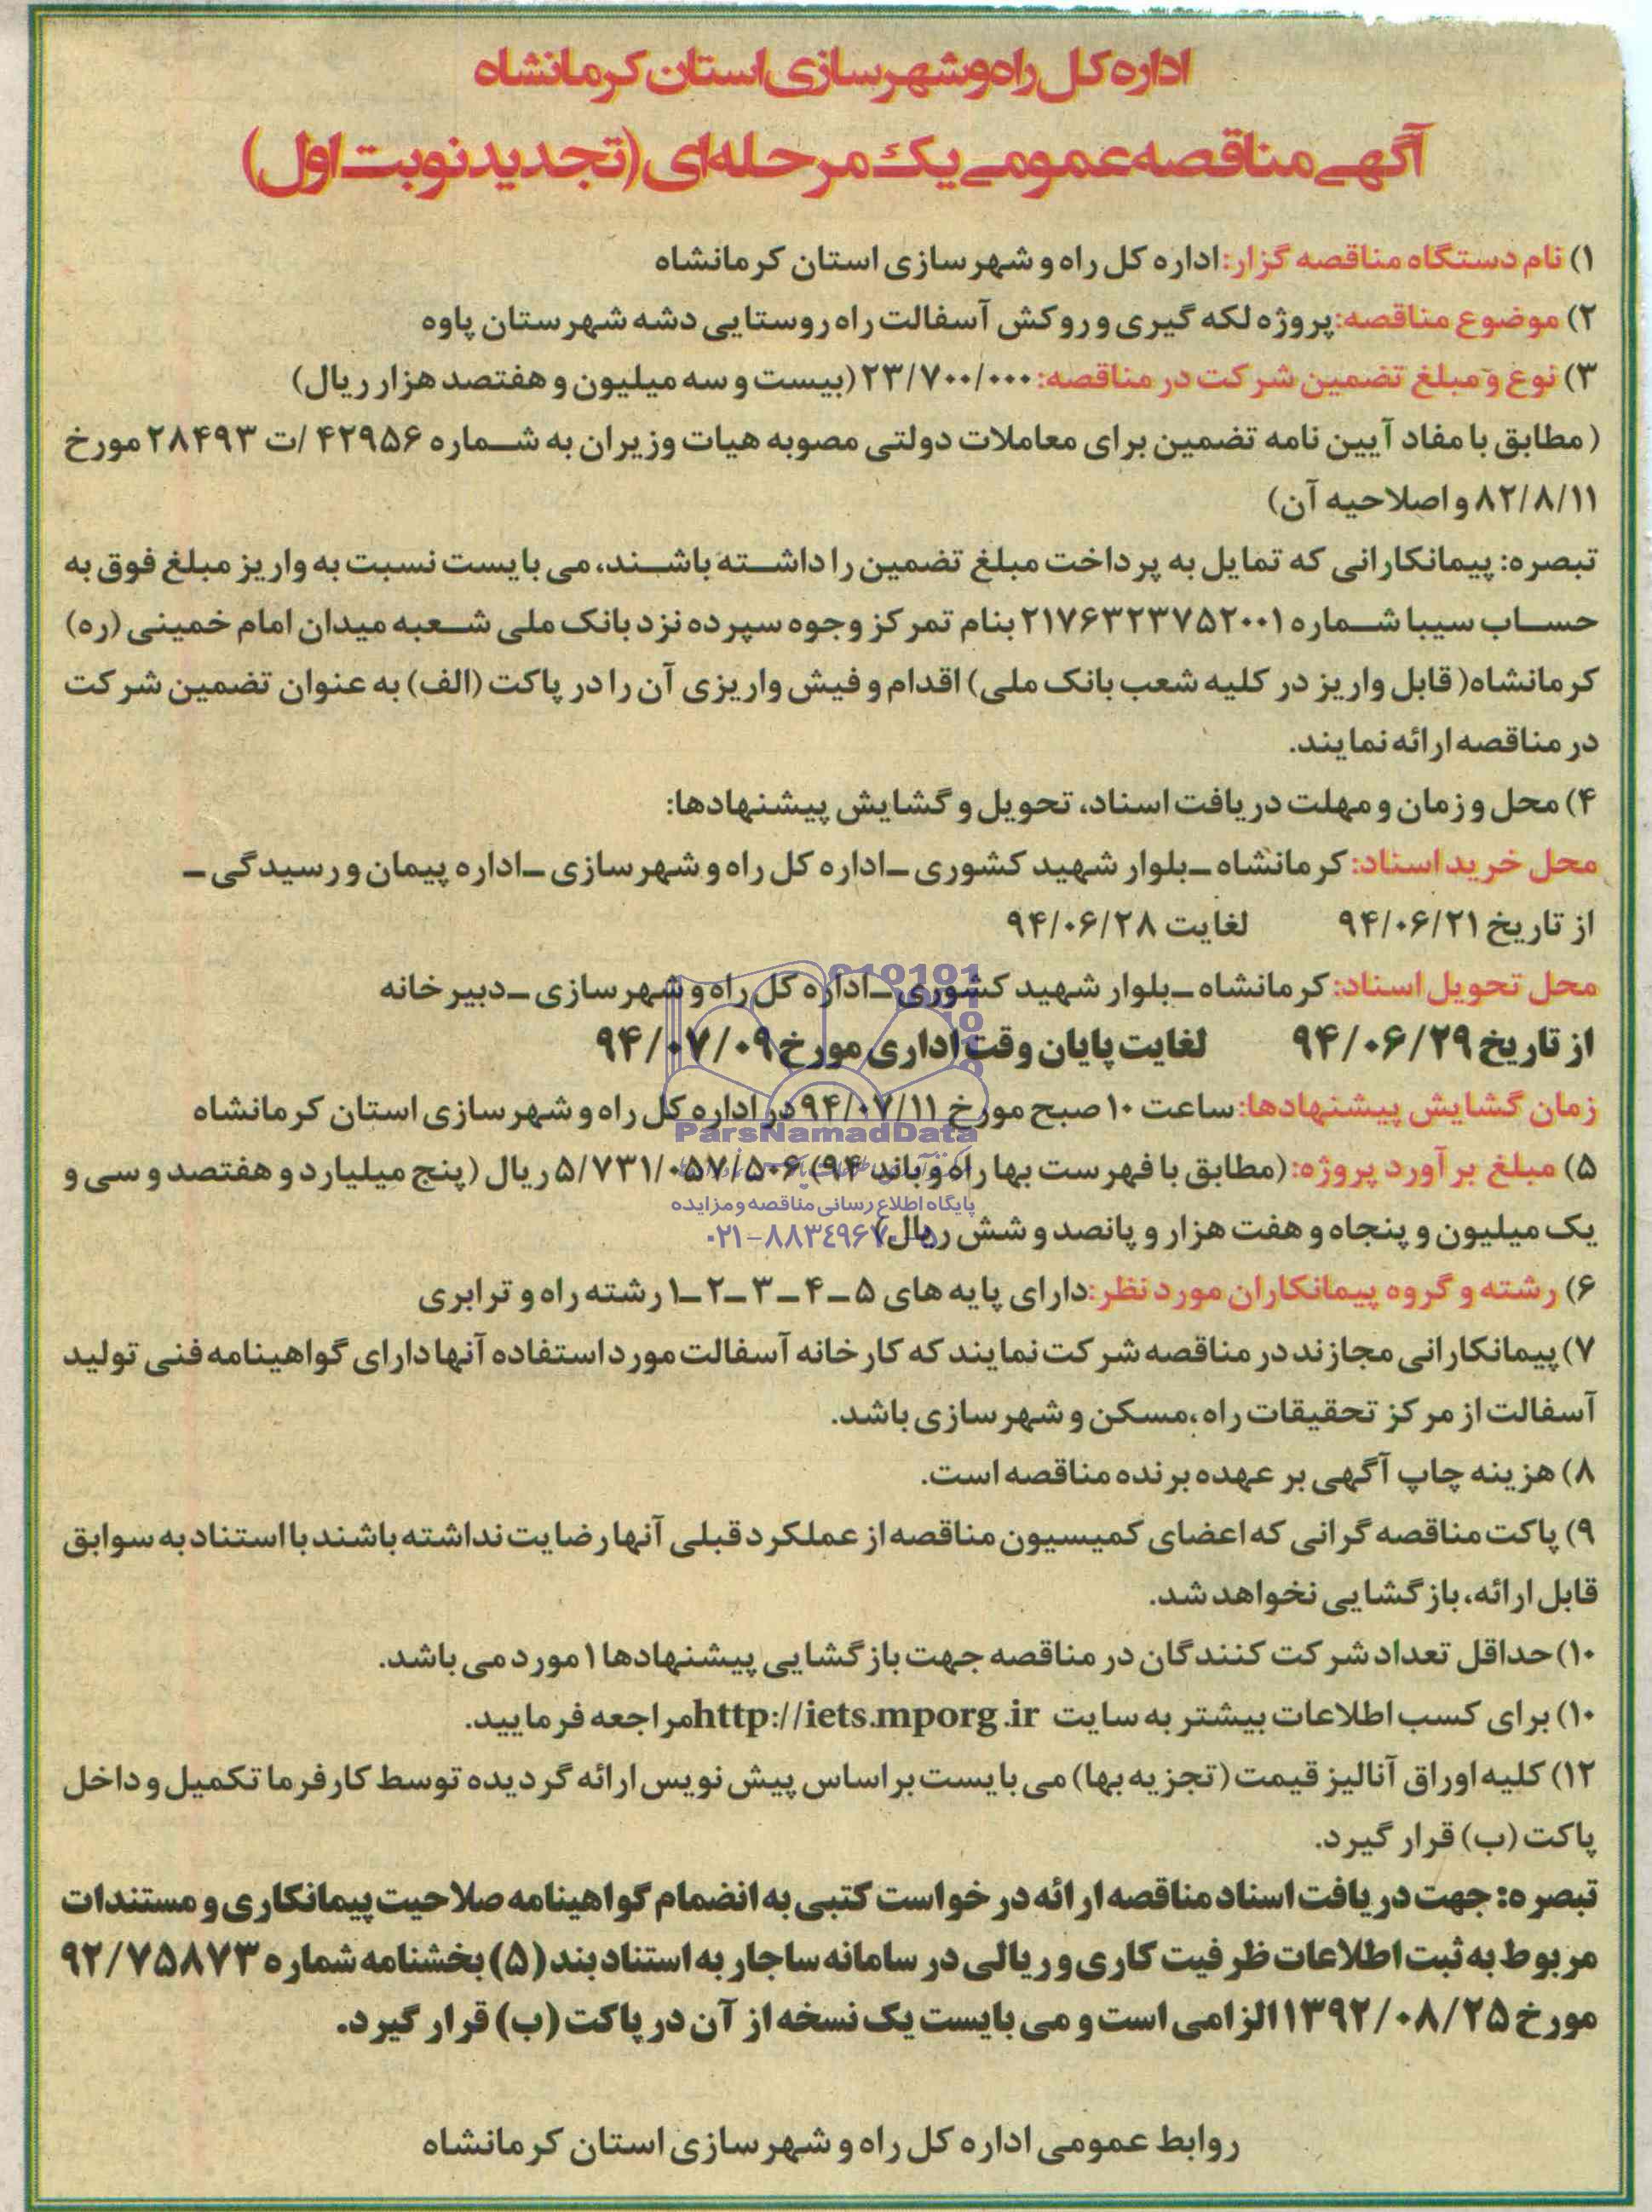 اداره کل راه و شهرسازی استان کرمانشاه
آگهی مناقصه عمومی یک مرحله‌ای (تجدید نوبت اول)
۱) نام دستگاه مناقصه گزار: اداره کل راه و شهرسازی استان کرمانشاه
۲) موضوع مناقصه: پروژه لکه گیری و روکش آسفالت راه روستایی دشه شهرستان پاوه
۳) نوع و مبلغ تضمین شرکت در مناقصه: ۲۳/۷۰۰/۰۰۰ (بیست و سه میلیون و هفتصد هزار ریال)
( مطابق با مفاد آیین نامه تضمین برای معاملات دولتی مصوبه هیات وزیران به شماره ۴۲۹۵۶ /ت ۲۸۴۹۳ مورخ
۸۲/۸/۱۱ و اصلاحیه آن)
تبصره: پیمانکارانی که تمایل به پرداخت مبلغ تضمین را داشته باشند، می بایست نسبت به واریز مبلغ فوق به
حساب سیبا شماره ۲۱۷۶۳۲۳۷۵۲۰۰۱ بنام تمرکز وجوه سپرده نزد بانک ملی شعبه میدان امام خمینی (ره)
کرمانشاه( قابل واریز در کلیه شعب بانک ملی) اقدام و فیش واریزی آن را در پاکت (الف) به عنوان تضمین شرکت
در مناقصه ارائه نمایند.
۴) محل و زمان و مهلت دریافت اسناد، تحویل و گشایش پیشنهادها:
محل خرید اسناد: کرمانشاه ـ بلوار شهید کشوری ـ اداره کل راه و شهرسازی ـ اداره پیمان و رسیدگی ـ
از تاریخ ۹۴/۰۶/۲۱ لغایت ۹۴/۰۶/۲۸
محل تحویل اسناد: کرمانشاه ـ بلوار شهید کشوری ـ اداره کل راه و شهرسازی ـ دبیرخانه
از تاریخ ۹۴/۰۶/۲۹ لغایت پایان وقت اداری مورخ ۹۴/۰۷/۰۹
زمان گشایش پیشنهادها: ساعت ۱۰ صبح مورخ ۹۴/۰۷/۱۱ در اداره کل راه و شهرسازی استان کرمانشاه
ParsNamadData
۵) مبلغ برآورد پروژه: (مطابق با فهرست بها راه و باند ۹۴) ۵/۷۳۱/۰۵۷/۵۰۶ ریال (پنج میلیارد و هفتصد و سی و
پایگاه اطلاع رسانی مناقصه و مزایده
یک میلیون و پنجاه و هفت هزار و پانصد و شش ریال)
۰۲۱-۸۸۳۴۹۶۷۰-۵
۶) رشته و گروه پیمانکاران مورد نظر: دارای پایه های ۵ ـ ۴ ـ ۳ ـ ۲ ـ ۱ رشته راه و ترابری
۷) پیمانکارانی مجازند در مناقصه شرکت نمایند که کارخانه آسفالت مورد استفاده آنها دارای گواهینامه فنی تولید
آسفالت از مرکز تحقیقات راه ،مسکن و شهرسازی باشد.
۸) هزینه چاپ آگهی بر عهده برنده مناقصه است.
۹) پاکت مناقصه گرانی که اعضای کمیسیون مناقصه از عملکرد قبلی آنها رضایت نداشته باشند با استناد به سوابق
قابل ارائه، بازگشایی نخواهد شد.
۱۰) حداقل تعداد شرکت کنندگان در مناقصه جهت بازگشایی پیشنهادها ۱ مورد می باشد.
۱۰) برای کسب اطلاعات بیشتر به سایت http://iets.mporg.ir مراجعه فرمایید.
۱۲) کلیه اوراق آنالیز قیمت (تجزیه بها) می بایست بر اساس پیش نویس ارائه گردیده توسط کارفرما تکمیل و داخل
پاکت (ب) قرار گیرد.
تبصره: جهت دریافت اسناد مناقصه ارائه درخواست کتبی به انضمام گواهینامه صلاحیت پیمانکاری و مستندات
مربوط به ثبت اطلاعات ظرفیت کاری و ریالی در سامانه ساجار به استناد بند (۵) بخشنامه شماره ۹۲/۷۵۸۷۳
مورخ ۱۳۹۲/۰۸/۲۵ الزامی است و می بایست یک نسخه از آن در پاکت (ب) قرار گیرد.
روابط عمومی اداره کل راه و شهرسازی استان کرمانشاه